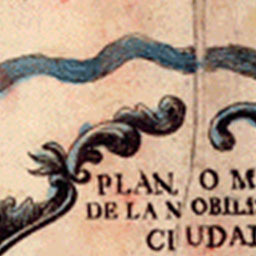 PLAN. O M
DE LA NOBILI
CIUDAD